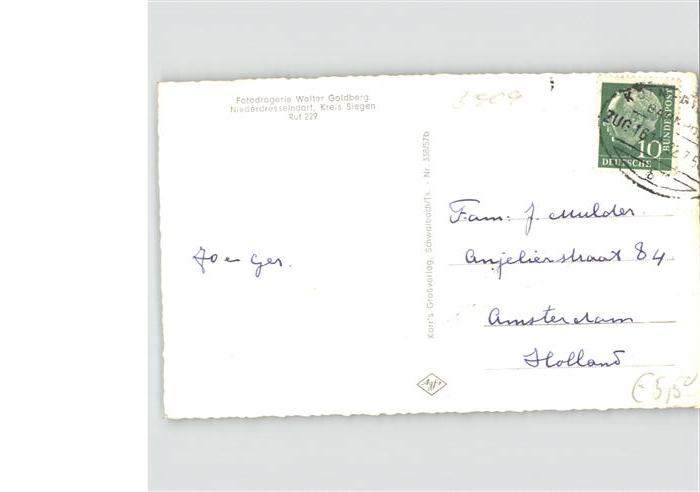 Fotodrogerie Walter Goldberg
Niederdresselndorf, Kreis Siegen
Ruf 229
Jo en Ger.
Karr's Großverlag, Schwalbach/Ts. - Nr. 338/57b
BUNDESPOST
10
DEUTSCHE
ZUG 16
Fam: J. Mulder.
Anjelierstraat 84
Amsterdam
Holland
Agfa
€ 5,50